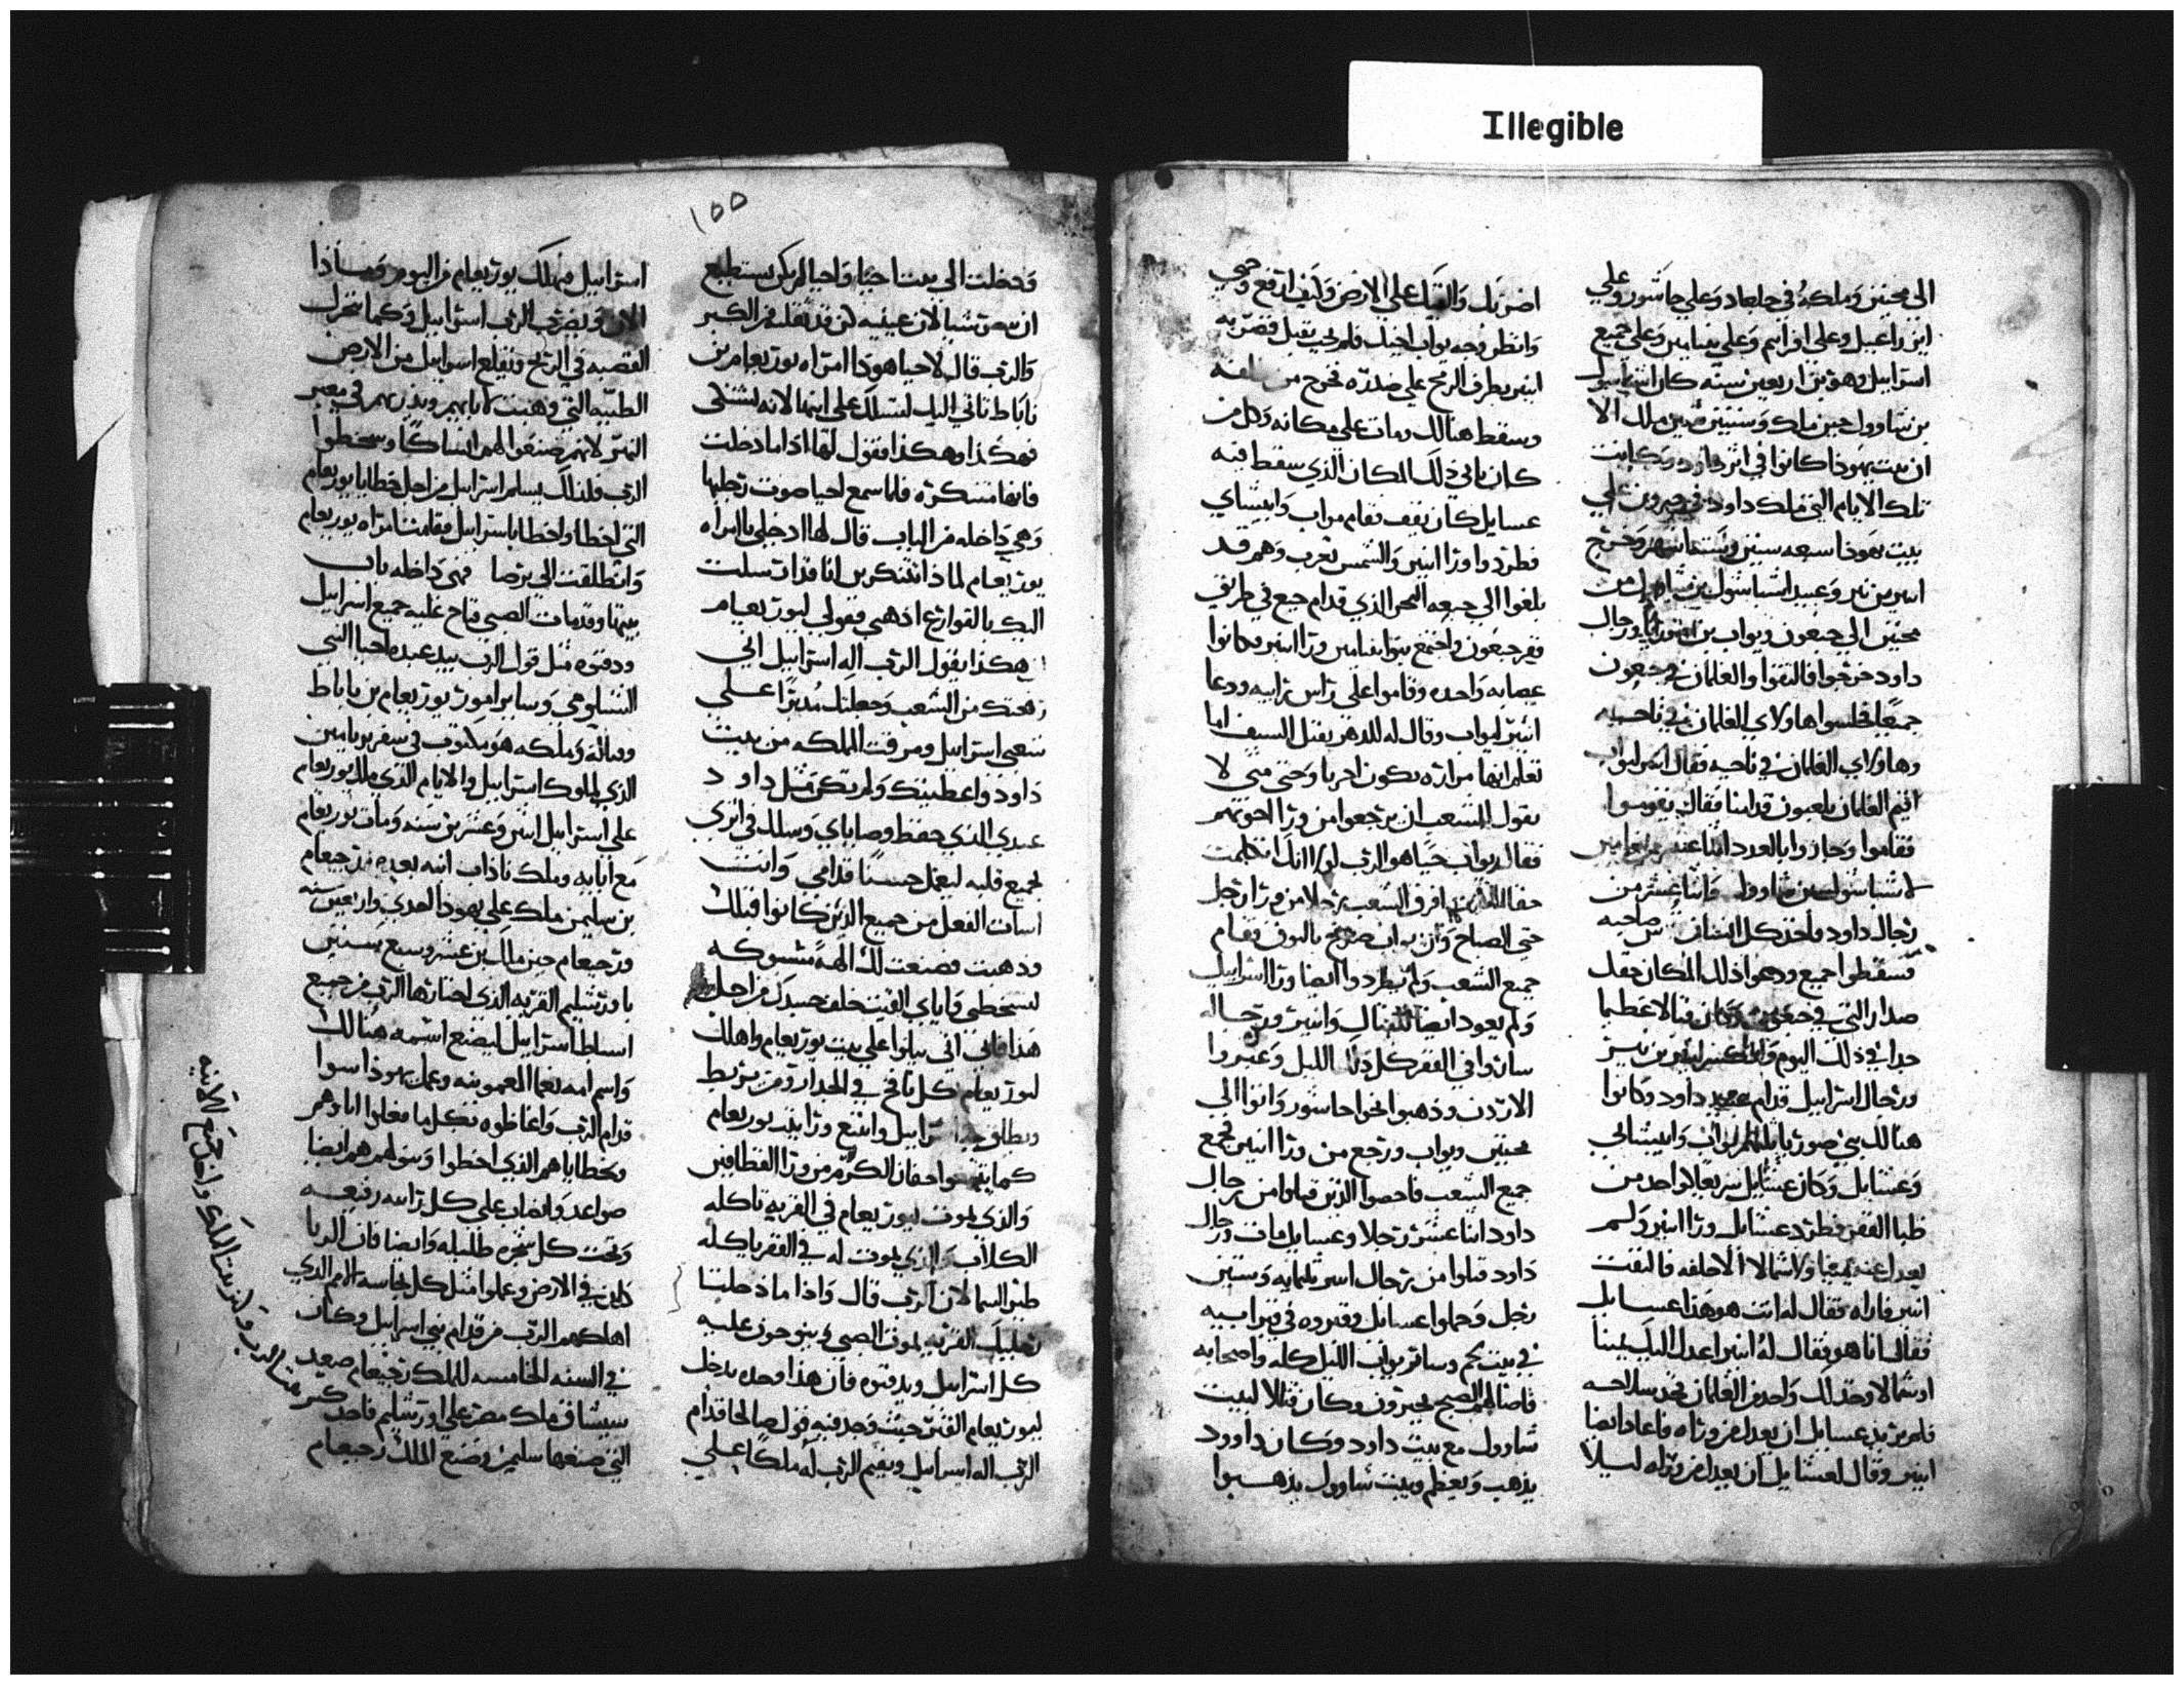 Illegible
الى محنين وملكه في جلعاد وعلي جاشور وعلي
ابن راعيل وعلى افرايم وعلى بنيامين وعلى جميع
اسراييل وهو بن اربعين سنه كان
بن شاوول حين ملك وسنتين ملك الا
ان بيت يهوذا كانوا في اثر داود وكانت
تلك الايام التي ملك داود في حبرون علي
بيت يهوذا سبعه سنين وستة اشهر وخرج
ابنير بن نير وعبيد
محنين الى جبعون ويواب بن ورجال
داود خرجوا فالتقوا والغلمان في جبعون
جميعا فجلسوا هاولاي الغلمان في ناحيه
وهاولاي الغلمان في ناحيه فقال ابنير ليواب
اقيم الغلمان يلعبون قدامنا فقال يقوموا
فقاموا وجازوا بالعدد اثنا عشر
واثنا عشر من
رجال داود فاخذ كل انسان صاحبه
فسقطوا جميع ودعوا ذلك المكان حقل
قتالا عظيما
جدا في ذلك اليوم بن نير
ورجال اسراييل قدام عبيد داود وكانوا
هنالك بني صوريا يواب وابيشاي
وعسايل وكان عسايل سريعا كواحد من
ظبا القفر فطرد عسايل ورا ابنير ولم
يعدل عنه يمينا ولا شمالا الا خلفه فالتفت
ابنير فاراه فقال له انت هو هذا عسايل
فقال انا هو فقال له ابنير اعدل اليك يمينا
او شمالا وخذ لك واحد من الغلمان تجد سلاحه
فلم يريد عسايل ان يعدل من وراه فاعاد ايضا
ابنير وقال لعسايل ان يعدل من وراه ليلا
اضربك والقيك علي الارض وكيف ارفع وجهي
وانظر وجه يواب اخيك فلم يحب يقبل فضربه
ابنير بطرف الرمح علي صدره فخرج من خلفه
وسقط هنالك ومات على مكانه وكل من
كان ياتي ذلك المكان الذي سقط فيه
عسايل كان يقف فقام يواب وابيشاي
فطردوا ورا ابنير والشمس تغرب وهم قد
بلغوا الى جبعه الذي قدام جيع في طريق
قفر جبعون واجتمع بنوا بنيامين ورا ابنير وكانوا
عصابه واحده وقاموا على راس رابيه ودعا
ابنير ليواب وقال له للدهر يقتل السيف اما
تعلم انها مراره تكون اخريا وحتى متى لا
تقول للشعب ان يرجعوا من ورا اخوتهم
فقال يواب حيا هو الرب لولا انك تكلمت
افرق الشعب رجلا من ورا رجل
حتى الصباح وان يواب صرخ بالبوق فقام
جميع الشعب ولم يطردوا ايضا ورا اسراييل
ولم يعود ايضا للقتال وابنير ورجاله
ساروا في القفر كل ذلك الليل وعبروا
الاردن وذهبوا نحوا جاشور واتوا الى
محنين ويواب ورجع من ورا ابنير فجمع
جميع الشعب فاحصوا الذين قتلوا من رجال
داود اثنا عشر رجلا وعسايل مات ورجال
داود قتلوا من رجال ابنير ثلثمايه وستين
رجل وحملوا عسايل وقبروه في قبر ابيه
في بيت لحم وسار يواب الليل كله واصحابه
فاضا لهم الصبح بحبرون وكان قتالا لبيت
شاوول مع بيت داود وكان داوود
يذهب ويعظم وبيت شاوول يذهبوا
١٥٥
ودخلت الى بيت احيا واحيا لم يكن يستطيع
ان يبصر شيا لان عينيه كن قد ثقلن من الكبر
والرب قال لاحيا هوذا امراه يوربعام بن
ناباط تاتي اليك لتسلك على ابنها لانه يشتكى
فهكذا وهكذا فتقول لها اذا ما دخلت
فانها متنكره فلما سمع احيا صوت رجليها
وهي داخله من الباب قال لها ادخلي يا امراه
يوربعام لماذا تتنكرين انا قد ارسلت
اليك بالقوارع اذهبي فقولي ليوربعام
هكذا يقول الرب اله اسراييل اني
رفعتك من الشعب وجعلتك مدبرا على
شعبي اسراييل ومزقت المملكه من بيت
داود واعطيتك ولم تكن مثل داود
عبدي الذي حفظ وصاياي وسلك في اثري
بجميع قلبه ليعمل حسنا قدامي وانت
اسات الفعل من جميع الذين كانوا قبلك
وذهبت وصنعت لك الهة مسبوكه
لتسخطني واياي القيت خلف جسدك من اجل
هذا فاني اتي ببلوا علي بيت يوربعام واهلك
ليوربعام كل نافخ في الجدار ومن يربط
ويطلق في اسراييل واتبع ورا بيت يوربعام
كما يتبعوا حفان الكرم من ورا القطافين
والذي يموت ليوربعام في القريه تاكله
الكلاب والذي يموت له في القفر ياكله
طير السما لان الرب قال واذا ما دخلت
رجليك القريه يموت الصبي وينوحون عليه
كل اسراييل ويدفنوه فان هذا وحده يدخل
ليوربعام القبر حيث وجد فيه قول صالحا قدام
الرب اله اسراييل ويقيم الرب له ملكا على
اسراييل يهلك يوربعام من اليوم وماذا
الان ويضرب الرب اسراييل وكما تتحرك
القصبه في الريح ويقلع اسراييل من الارض
الطيبه التي وهبت لابايهم ويذريهم في معبر
النهر لانهم صنعوا لهم انساكا وسخطوا
الرب فلذلك يسلم اسراييل من اجل خطايا يوربعام
التي اخطا واخطا باسراييل فقامت امراه يوربعام
وانطلقت الى برصا فهي داخله باب
بيتها وقد مات الصبي فناح عليه جميع اسراييل
ودفنوه مثل قول الرب بيد عبده احيا النبي
الشيلوهي وساير امور يوربعام بن ناباط
وقتاله وملكه هو مكتوب في سفر بريامين
الذي لملوك اسراييل والايام الذي ملك يوربعام
علي اسراييل اثنين وعشرين سنه ومات يوربعام
مع ابايه وملك ناداب ابنه بعده ورجبعام
بن سليمن ملك علي يهوذا احدي واربعين سنه
ورجبعام حين ملك بن عشر وسبع سنين
باورشليم القريه الذي اختارها الرب من جميع
اسباط اسراييل ليضع اسمه هنالك
واسم امه نعما العمونيه وعمل يهوذا سوا
قدام الرب واغاظوه بكل ما فعلوا اباوهم
وبخطاياهم الذي اخطوا وبنوا لهم هم ايضا
صواعد وانصاب علي كل رابيه رفيعه
وتحت كل شجره ظليله وايضا فان الزنا
كاين في الارض وعملوا مثل كل نجاسه الامم الذي
اهلكهم الرب من قدام بني اسراييل وكان
في السنه الخامسه للملك رجبعام صعد
سيشاق ملك مصر علي اورشليم فاخذ
التي صنعها سليمن وصنع الملك رجبعام
بيت الرب وكنز بيت الملك واخذ جميع الانيه